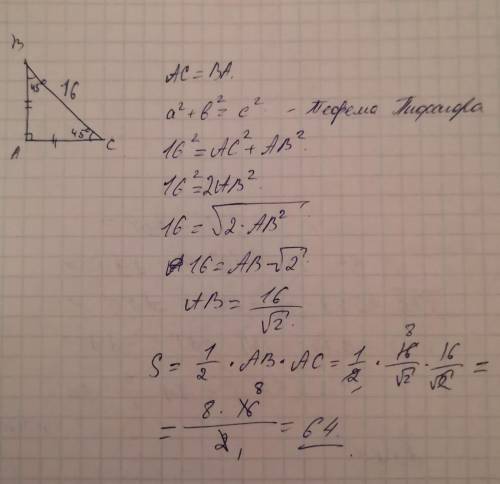 B
45°
16
A
45°
C
AC = BA.
a² + b² = c² - Теорема Пифагора
16² = AC² + AB²
16² = 2AB²
16 = √(2·AB²)
16 = AB√2
AB = 16/√2
S = 1/2 · AB · AC = 1/2 · 16/√2 · 16/√2 =
8
= (8 · 16)/2 = 64.
8